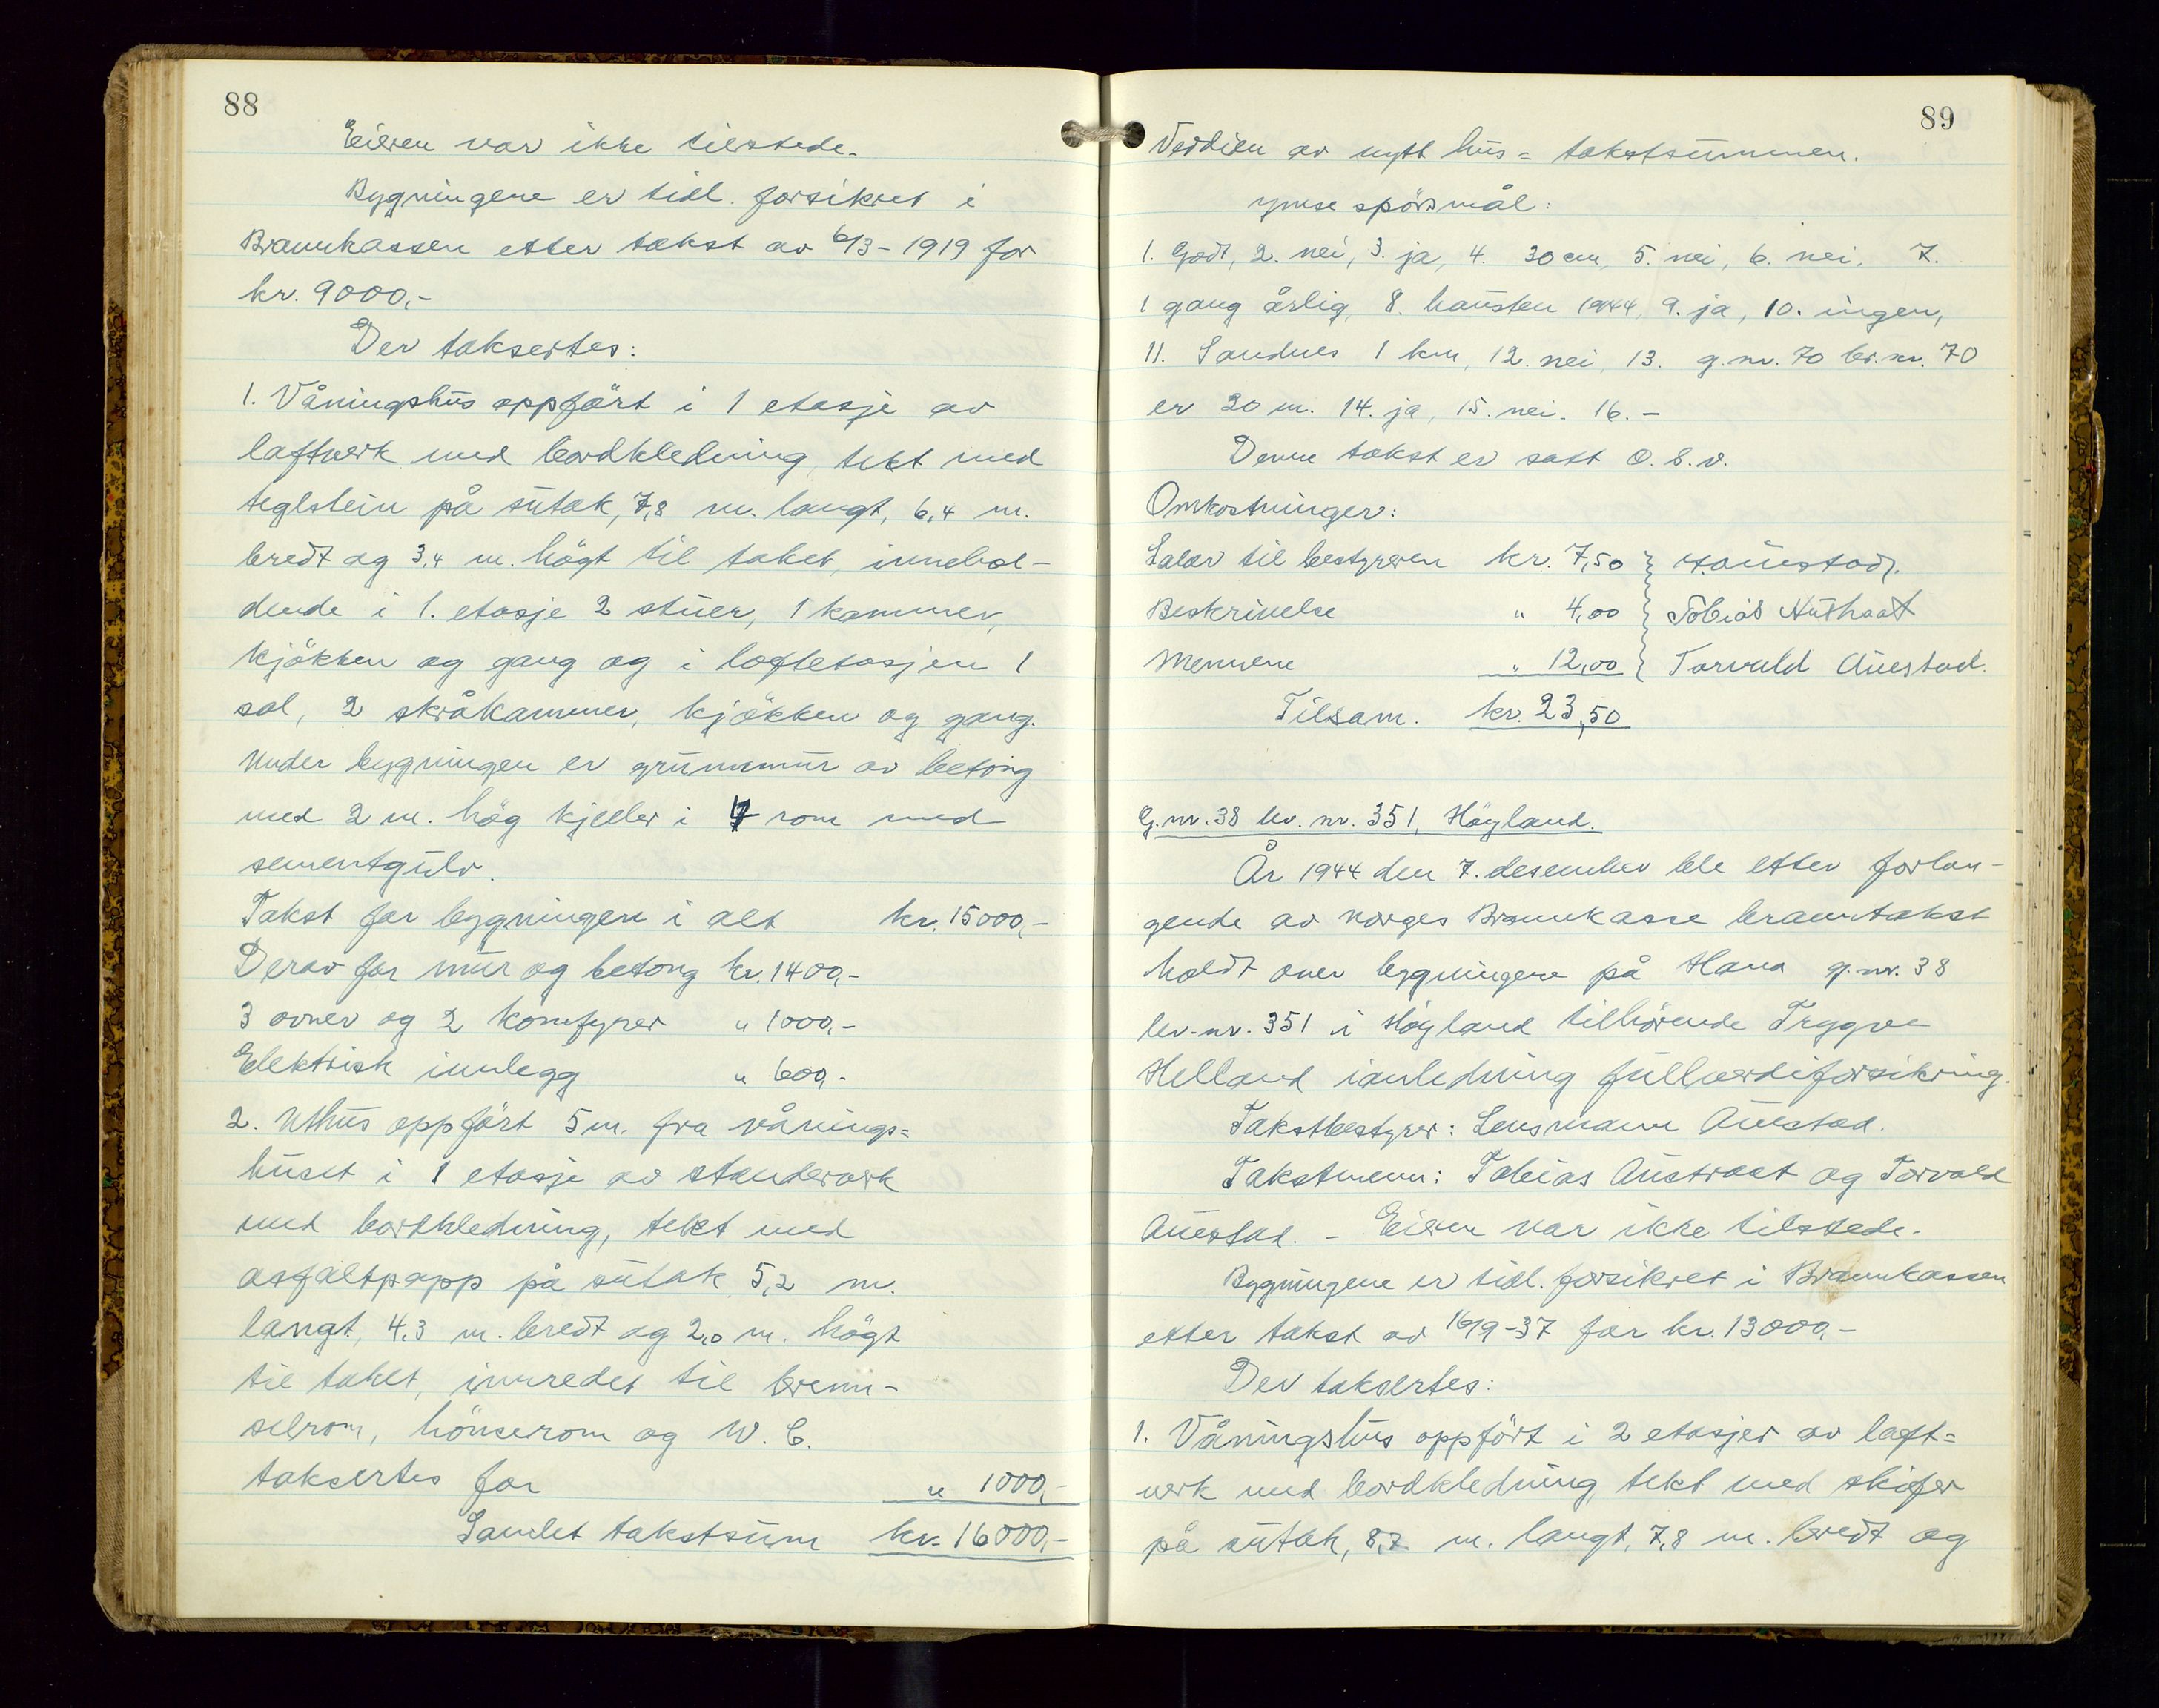 88
Eieren var ikke tilstede.
Bygningene er tidl. forsikret i
Brannkassen etter takst av 6/3-1919 for
kr. 9000,-
Der taksertes:
1. Våningshus oppfört i 1 etasje av
laftverk med bordkledning, tekt med
teglstein på sutak, 7,8 m. langt, 6,4 m.
bredt og 3,4 m. högt til taket, innehol-
dende i 1. etasje 2 stuer, 1 kammer,
kjökken og gang og i loftetasjen 1
sal, 2 skråkammer, kjökken og gang.
Under bygningen er grunnmur av betong
med 2 m. hög kjeller i 4 rom med
sementgulv.
Takst for bygningen i alt kr. 15000,-
Derav for mur og betong kr. 1400,-
3 ovner og 2 komfyrer " 1000,-
Elektrisk innlegg " 600,-
2. Uthus oppfört 5 m. fra vånings=
huset i 1 etasje av standerverk
med bordkledning, tekt med
asfaltpapp på sutak 5,2 m.
langt, 4,3 m. bredt og 2,0 m. högt
til taket, innredet til brenn-
selrom, hönserom og W.C.
taksertes for " 1000,-
Samlet takstsum kr. 16000,-
89
Verdien av nytt hus = takstsummen.
Ymse spörsmål:
1. Godt, 2. nei, 3. ja, 4. 30 cm, 5. nei, 6. nei, 7.
1 gang årlig, 8. hausten 1944, 9. ja, 10. ingen,
11. Sandnes 1 km, 12. nei, 13. g.nr. 70 br.nr. 70
er 20 m. 14. ja, 15. nei. 16. -
Denne takst er satt O.S.V.
Omkostninger:
Salær til bestyreren kr. 7,50 } H. Auestad.
Beskrivelse " 4,00 } Tobias Austraat
Mennene " 12,00 } Torvald Auestad.
Tilsam. kr. 23,50
G.nr. 38 br. nr. 351, Höyland.
År 1944 den 7. desember ble etter forlan-
gende av Norges Brannkasse branntakst
holdt over bygningene på Hana g.nr. 38
br.nr. 351 i Höyland tilhörende Trygve
Helland ianledning fullverdiforsikring.
Takstbestyrer: Lensmann Auestad.
Takstmenn: Tobias Austraat og Torvald
Auestad. - Eieren var ikke tilstede.
Bygningene er tidl. forsikret i Brannkassen
etter takst av 16/9-37 for kr. 13000,-
Der taksertes:
1. Våningshus oppfört i 2 etasjer av laft=
verk med bordkledning, tekt med skifer
på sutak, 8,7 m. langt, 7,8 m. bredt og